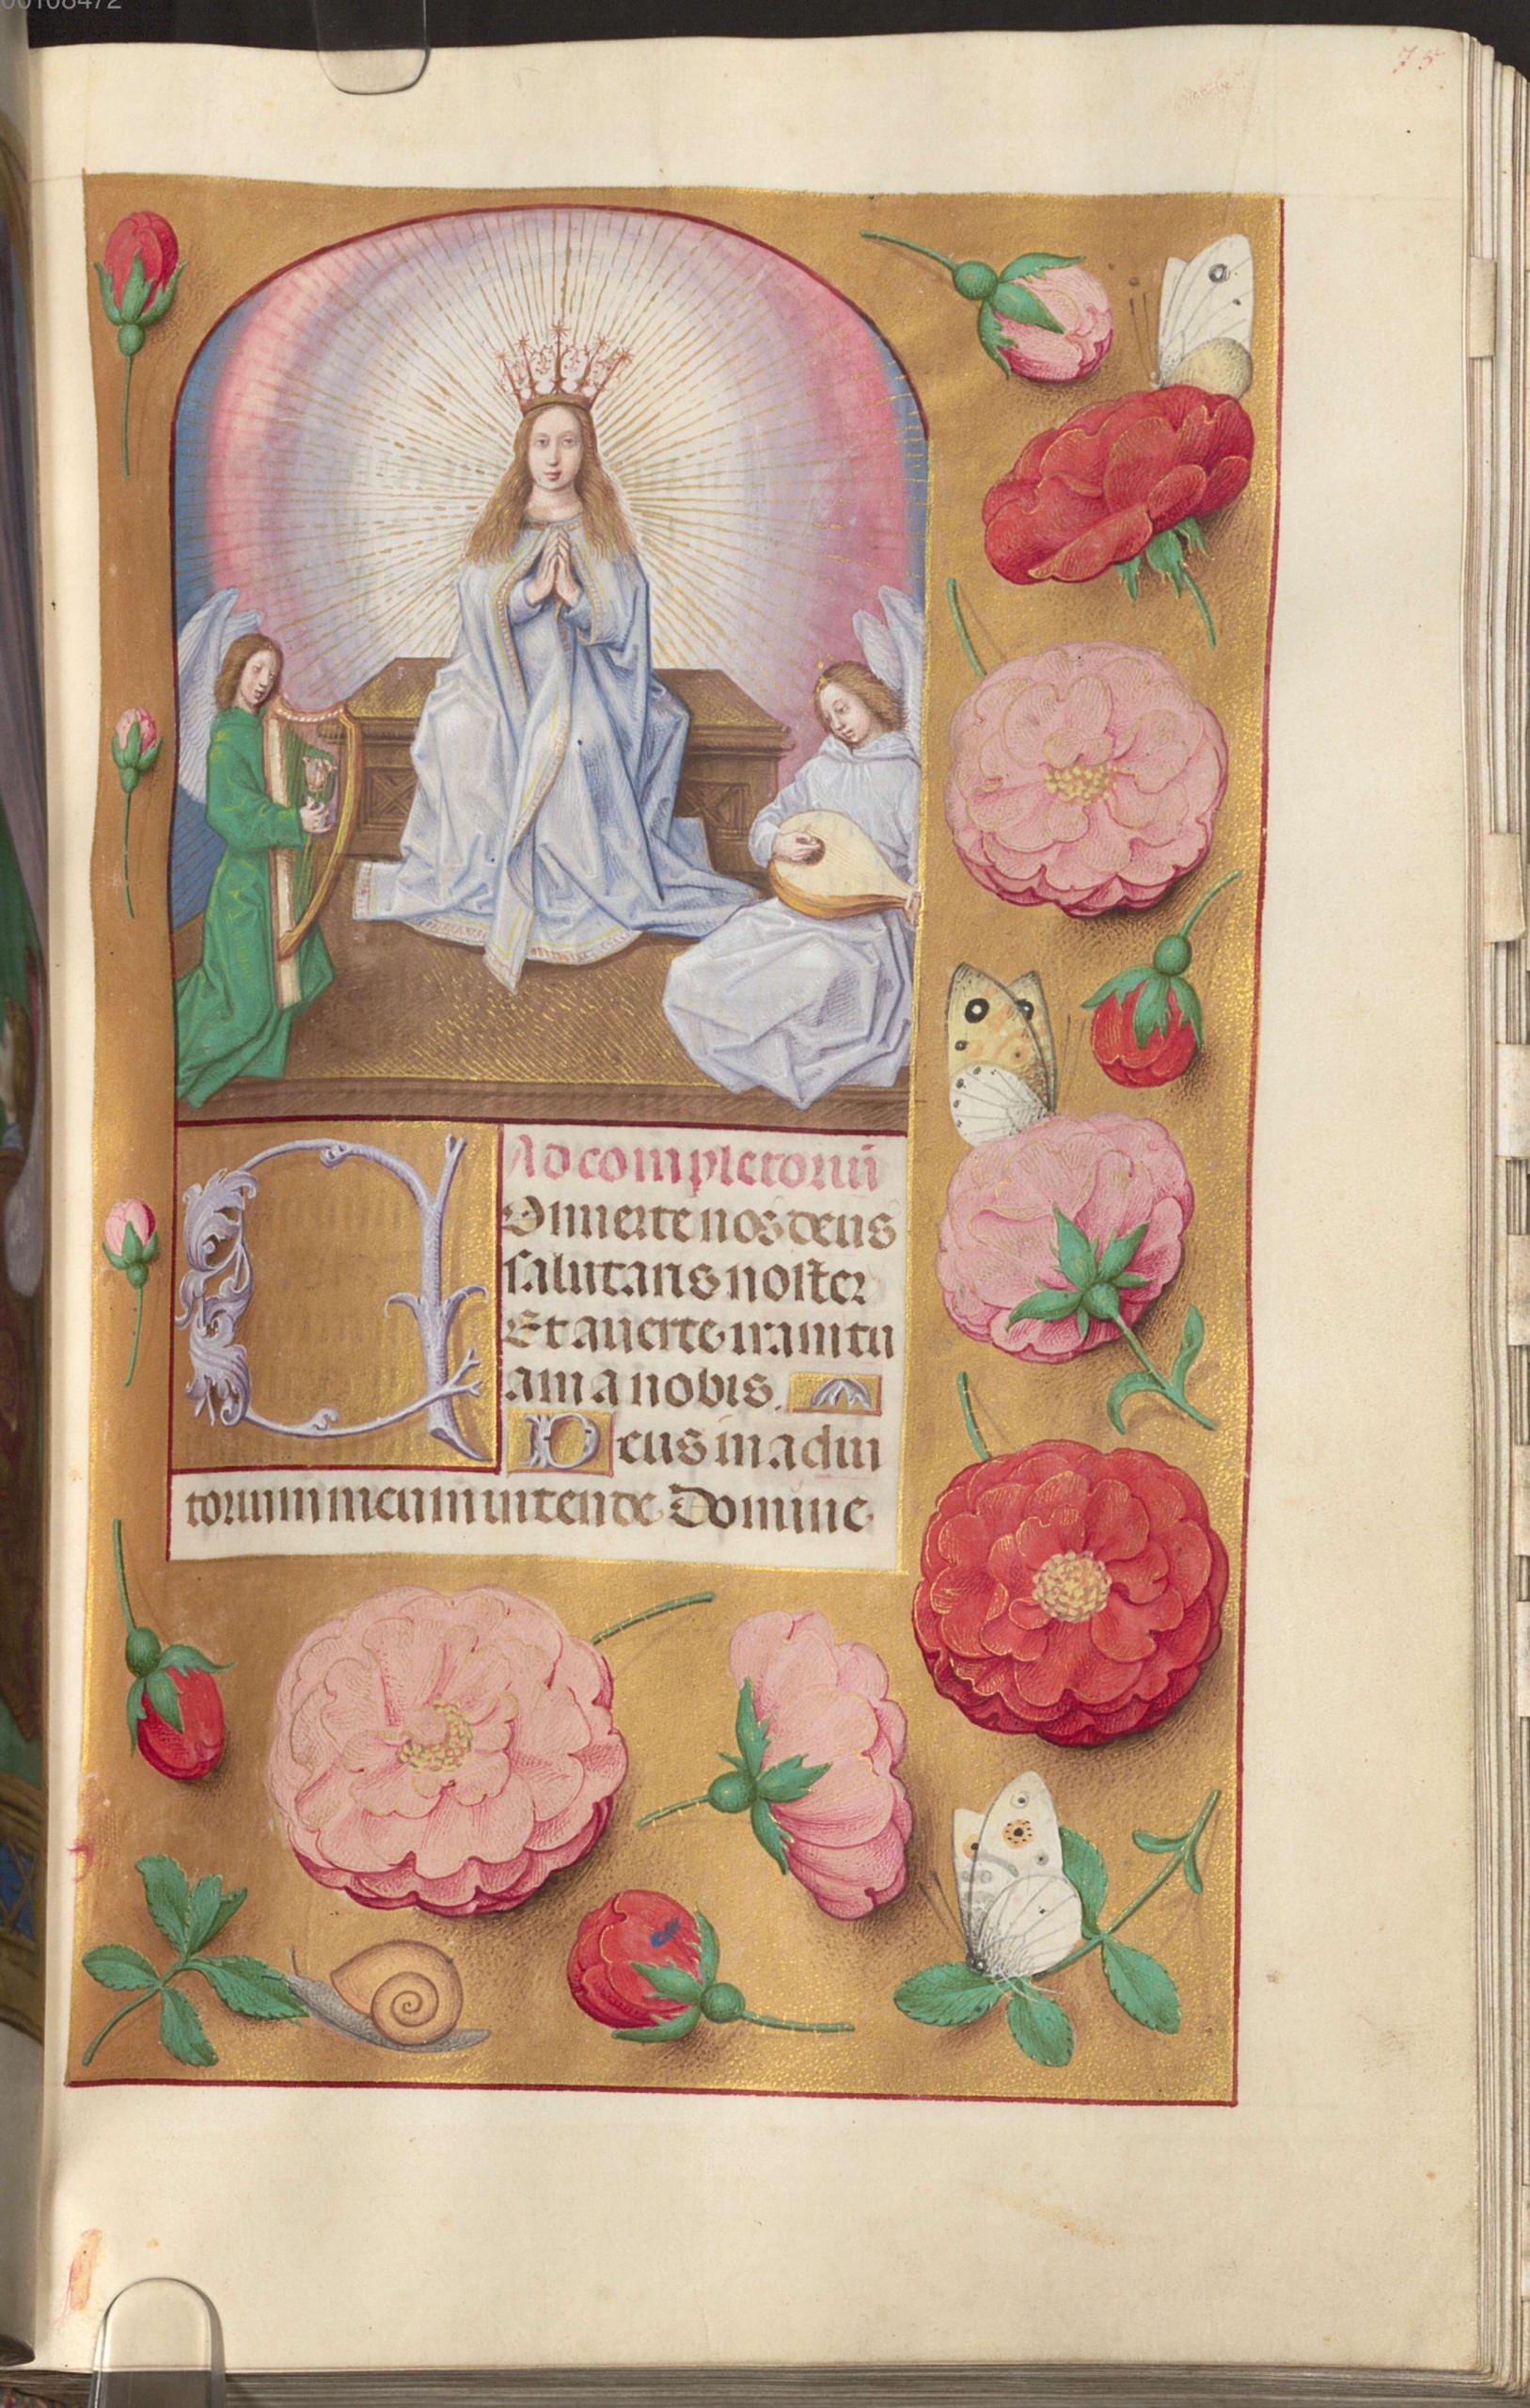 00108472
75
Ad completoriũ
COnuerte nos deus
salutaris noster
Et auerte iram tu
am a nobis.
Deus in adiu
torium meum intende Domine